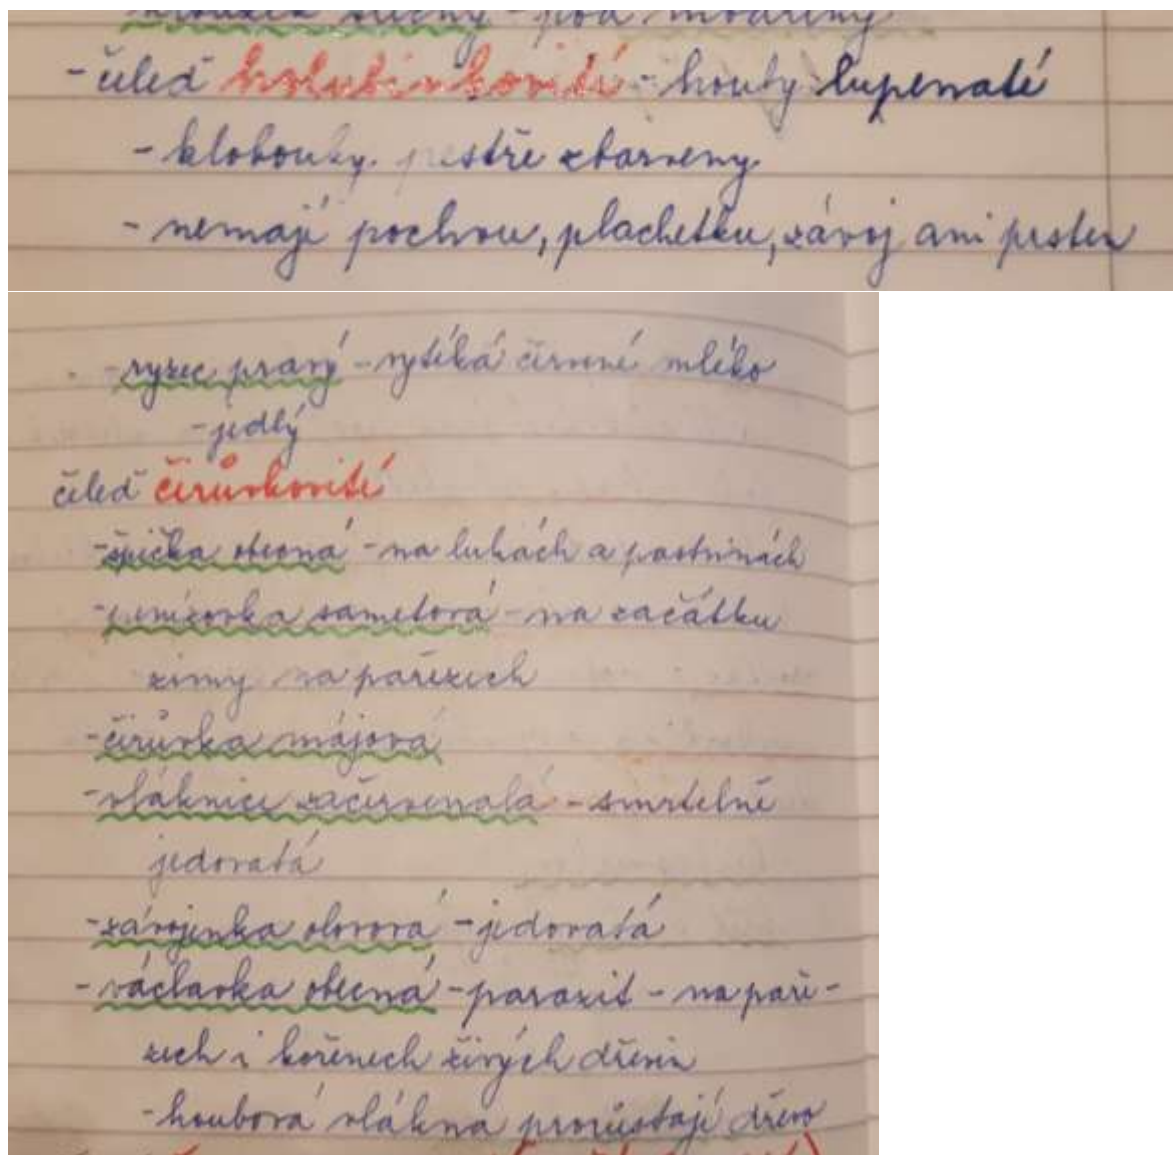 klouzek sličný - pod modříny
- čeleď holubinkovité - houby lupenaté
- klobouky pestře zbarveny
- nemají pochvu, plachetku, závoj ani prsten
- ryzec pravý - vytéká červené mléko
- jedlý
čeleď čirůvkovité
- špička obecná - na luhách a pastvinách
- penízovka sametová - na začátku
zimy na pařezech
- čirůvka májová
- vláknice začervenalá - smrtelně
jedovatá
- závojenka olovová - jedovatá
- václavka obecná - parazit - na paře-
zech i kořenech živých dřevin
- houbová vlákna prorůstají dřevo